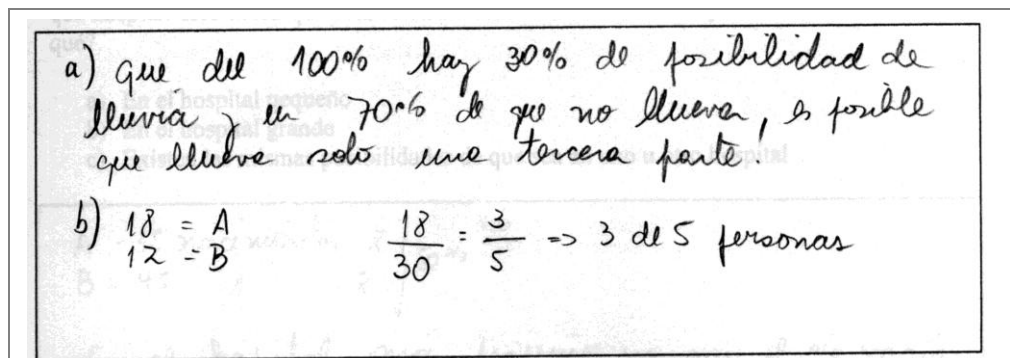 a) que del 100% hay 30% de posibilidad de
lluvia y un 70% de que no llueva, es posible
que llueva solo una tercera parte.
b) 18 = A
12 = B
18/30 = 3/5 => 3 de 5 personas